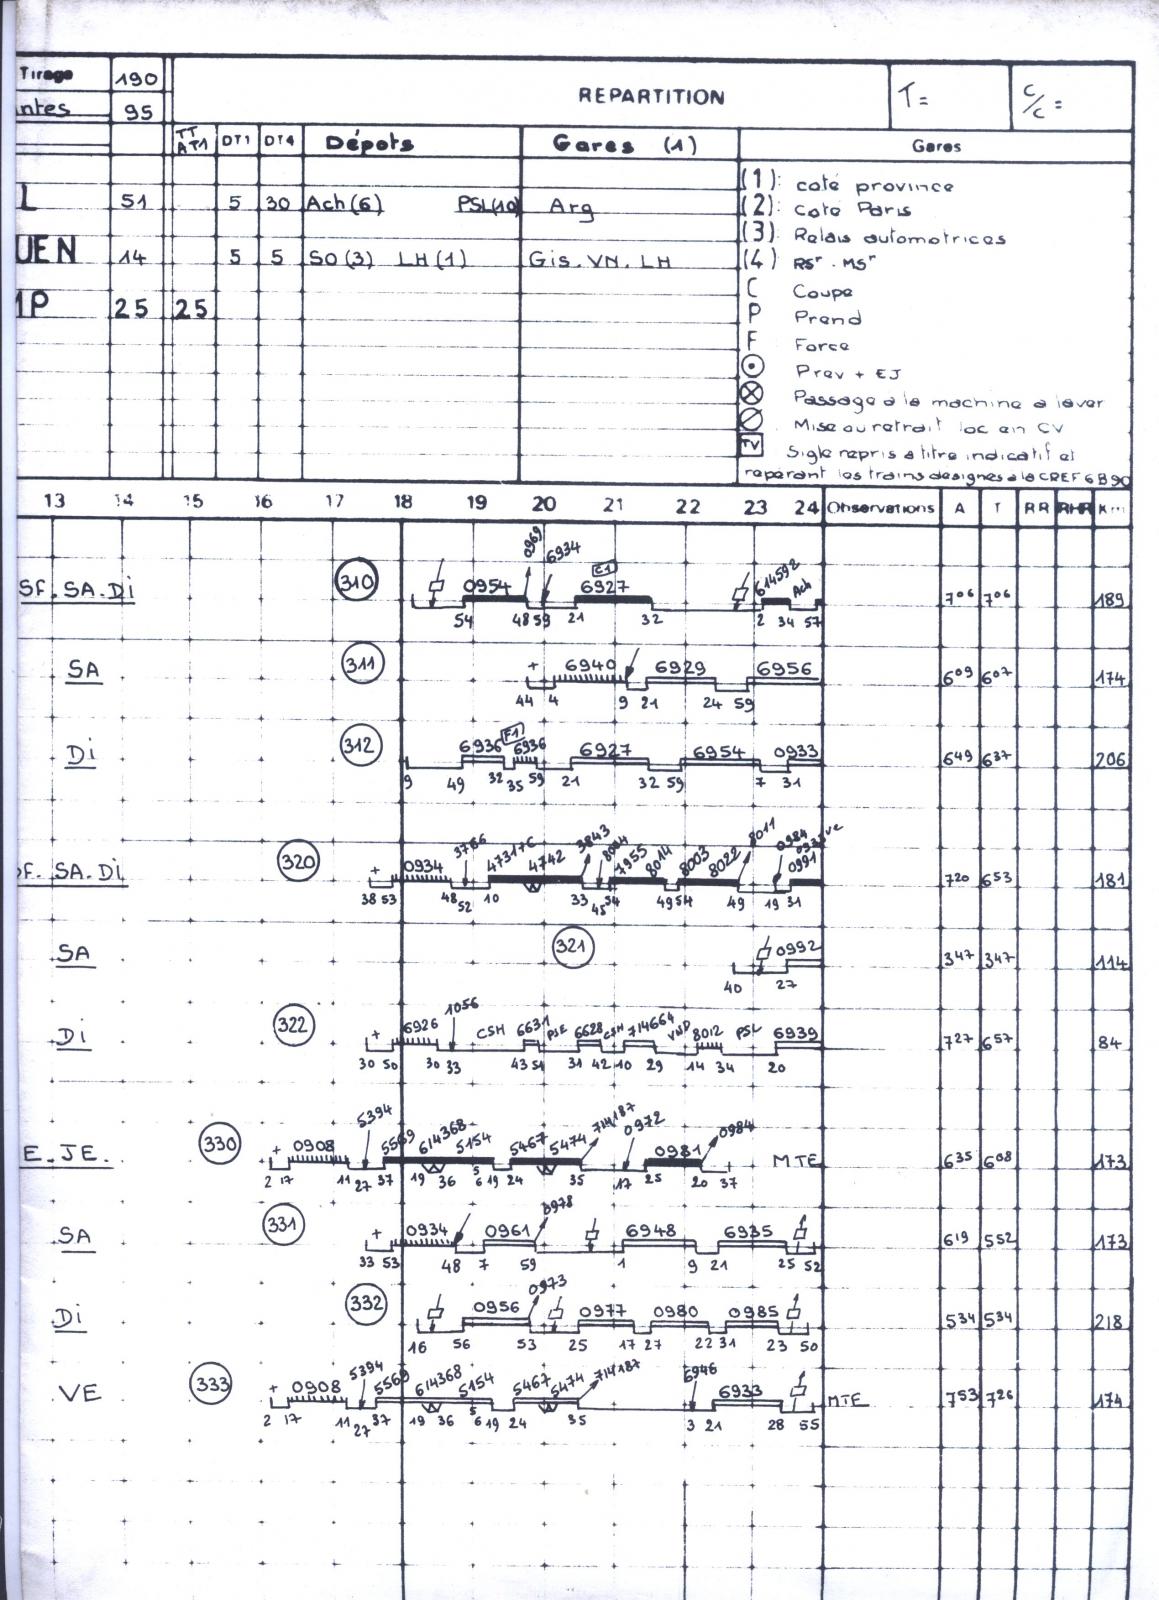 Tirage 190 REPARTITION T= C/C =
ntes 95
TT AT1 DT1 DT4 Dépots Gares (1) Gares
L 51 5 30 Ach(6) PSL(10) Arg
UEN 14 5 5 SO(3) LH(1) Gis. VN. LH
MP 25 25
(1) coté province
(2) coté Paris
(3) Relais automotrices
(4) RSr. MSr
C Coupe
P Prend
F Force
Prev + EJ
Passage a la machine a laver
Mise au retrait loc en CV
TV Sigle repris a titre indicatif et
repérant les trains designes a la CREF 6 B 90
13 14 15 16 17 18 19 20 21 22 23 24 Observations A T RR RHR Km
0969 6934
SF. SA. Di 310 0954 C1 6927 614592 Ach 7 06 7 06 189
54 48 59 21 32 2 34 57
SA 311 + 6940 6929 6956 6 09 6 07 174
44 4 9 21 24 59
Di 312 6936 F1 6936 6927 6954 0933 6 49 6 37 206
9 49 32 35 59 21 32 59 7 31
F. SA. Di 320 + 0934 3786 4731+C 4742 3843 8004 7955 8014 8003 8022 8011 0984 0991 7 20 6 53 181
38 53 48 52 10 33 45 54 49 54 49 19 31
SA 321 0992 3 47 3 47 114
40 27
Di 322 + 6926 1056 CSH 6631 PSE 6628 CSH 714664 VND 8012 PSL 6939 7 27 6 57 84
30 50 30 33 43 51 31 42 10 29 14 34 20
E. JE. 330 + 0908 5394 5569 614368 5154 5467 5474 714187 0972 0981 0984 MTE 6 35 6 08 173
2 17 11 27 37 19 36 5 6 19 24 35 17 25 20 37
SA 331 + 0934 0961 0978 6948 6935 6 19 5 52 173
33 53 48 7 59 1 9 21 25 52
Di 332 0956 0973 0977 0980 0985 5 34 5 34 218
16 56 53 25 17 27 22 31 23 50
VE 333 + 0908 5394 5569 614368 5154 5467 5474 714187 6946 6933 MTE 7 53 7 26 174
2 17 11 27 37 19 36 5 6 19 24 35 3 21 28 55